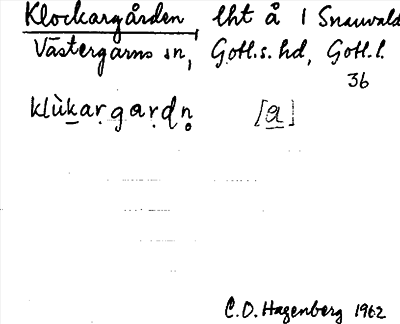 Klockargården, lht å 1 Snauvald
Västergarns sn, Gotl.s. hd, Gotl.l.
36
klu̇̀kạṛgạṛdṇ̥ [a]
C.O. Hagenberg 1962